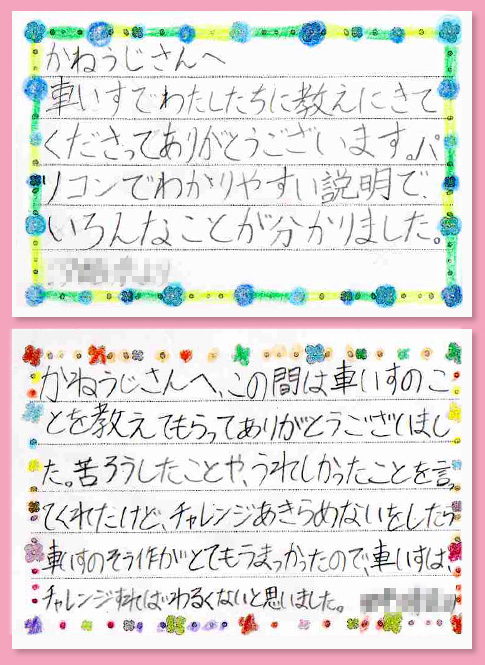 かねうじさんへ
車いすでわたしたちに教えにきて
くださってありがとうございます。パ
ソコンでわかりやすい説明で、
いろんなことが分かりました。
かねうじさんへ、この間は車いすのこ
とを教えてもらってありがとうございまし
た。苦ろうしたことや、うれしかったことを言っ
てくれたけど、チャレンジあきらめないをしたら
車いすのそう作がとてもうまっかったので、車いすは、
チャレンジすればわるくないと思いました。